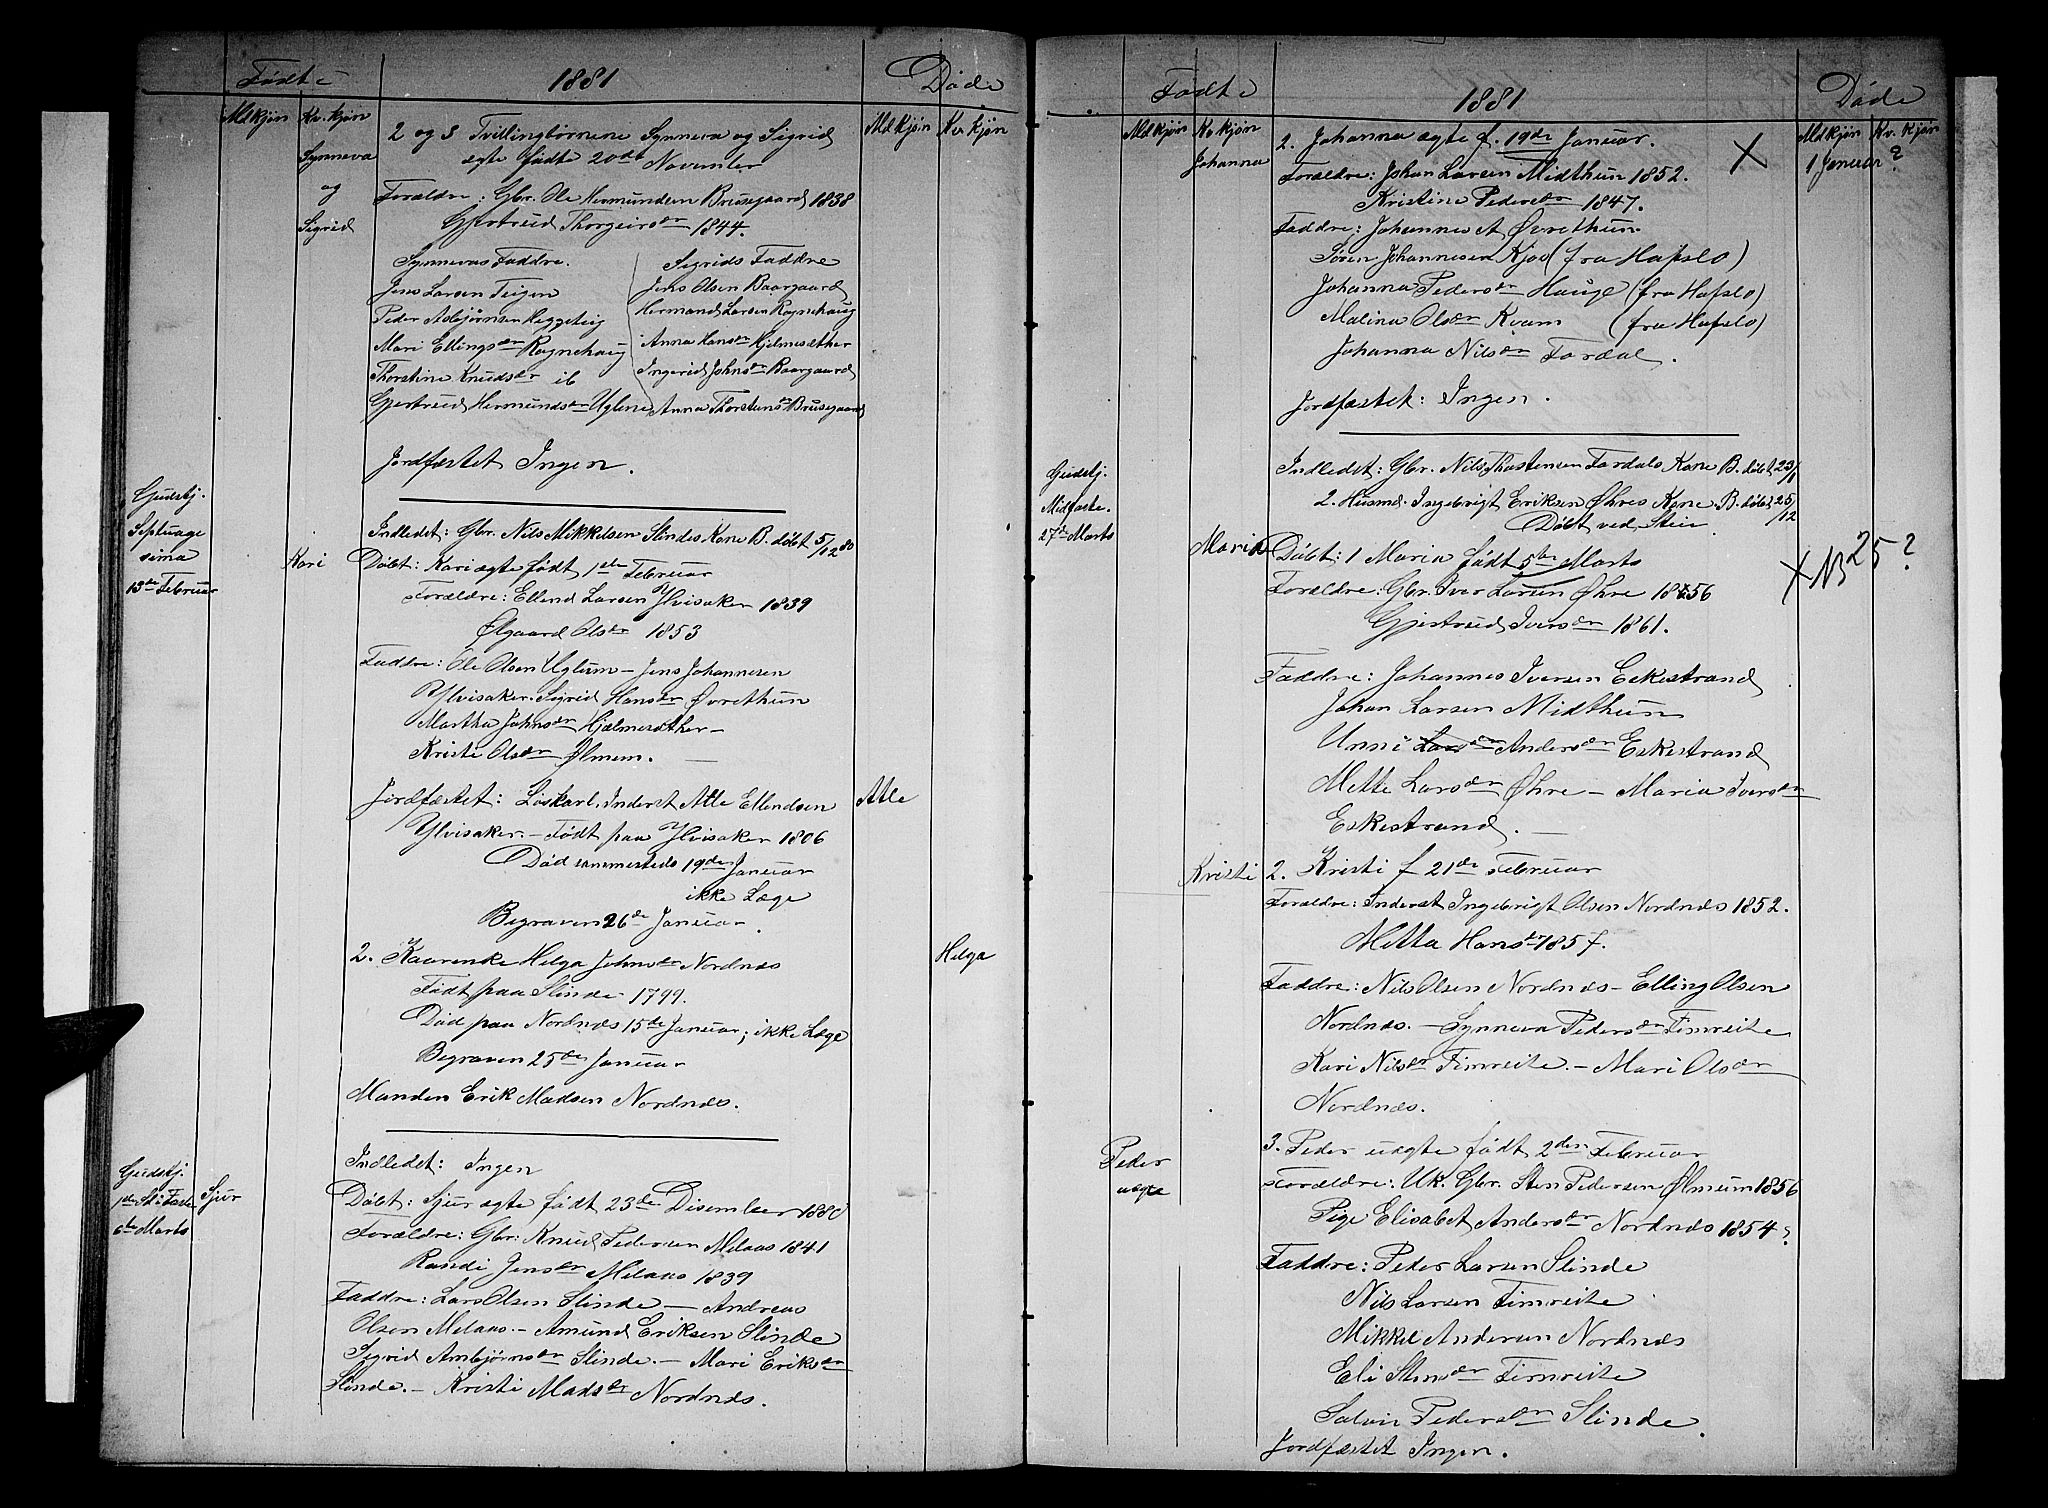 Fødte 1881 Døde
Mdkjøn Kv. kjøn Mdkjøn Kv kjøn
2 og 3 Tvillingbørnene Synneva og Sigrid
ægte fødte 20de November
Synneva
og
Sigrid
Forældre: Gbr. Ole Hermundsen Brusegaard 1838
Gjertrud Thorgeirsdr 1844.
Synnevas Faddre.
Jens Larsen Teigen
Peder Asbjørnsen Heggetvig
Mari Ellingsdr Ragnehaug
Thorstine Knudsdr ib
Gjertrud Hermundsdr Uglene
Sigrids Faddre
Jens Olsen Baargaard
Hermund Larsen Ragnehaug
Anna Hansdr Hjelmesæther
Ingerid Johnsdr Baargaard
Anna Thorstensdr Brusegaard
Jordfæstet Ingen.
Gudstj.
Septuage
sima
13de Februar
Indledet: Gbr. Nils Mikkelsen Slindes Kone B. døbt 5/12 80
Kari
Døbt: Kari ægte født 1ste Februar
Forældre: Ellend Larsen Ylvisaker 1839
Ølgaard Olsdr 1853
Faddre: Ole Olsen Uglum – Jens Johannesen
Ylvisaker. Sigrid Hansdr Øvrethun
Martha Johnsdr Hjælmesæther –
Kristi Olsdr Ølmem. –
Jordfæstet: Løskarl, Inderst Atle Ellendsen
Atle
Ylvisaker. – Født paa Ylvisaker 1806
Død sammesteds 19de Januar
ikke Læge
Begraven 26de Januar.
2. Kaarenke Helga Johnsdr Nordnæs
Helga
Født paa Slinde 1799.
Død paa Nordnæs 15de Januar; ikke Læge
Begraven 25de Januar
Manden Erik Madsen Nordnæs.
Gudstj.
1ste S. i Faste
6te Marts
Indledet: Ingen
Sjur
Døbt: Sjur ægte født 23de Disember 1880
Forældre: Gbr: Knud Pedersen Melaas 1841
Randi Jensdr Melaas 1839
Faddre: Lars Olsen Slinde – Andreas
Olsen Melaas. – Amund Eriksen Slinde
Sigrid Ambjørnsdr Slinde. – Mari Eriksdr
Slinde. – Kristi Madsdr Nordnæs.
Fødte 1881 Døde
Mdkjøn Kv kjøn Mdkjøn Kv. kjøn
Johanna
2. Johanna ægte f. 19de Januar. X
1 Januar ?
Forældre: Johan Larsen Midthun 1852.
Kristine Pedersdr 1847.
Faddre: Johannes A Øvrethun
Søren Johannesen Kjos (fra Hafslo)
Johanna Pedersdr Hauge (fra Hafslo)
Malina Olsdr Kvam (fra Hafslo)
Johanna Nilsdr Fardal.
Jordfæstet: Ingen.
Gudstj.
Midfaste.
27de Marts
Indledet: Gbr. Nils Thorstensen Fardals Kone B. døbt 23/1
2. Husmd. Ingebrigt Eriksen Øhres Kone B. døbt 25/12
Døbt ved Stein
Maria
Døbt: 1 Maria født 5te Marts
X NB 25?
Forældre: Gbr. Iver Larsen Øhre 1856
Gjertrud Iversdr 1861.
Faddre: Johannes Iversen Eskestrand
Johan Larsen Midthun
Unni Larsdr Andersdr Eskestrand
Mette Larsdr Øhre – Maria Iversdr
Eskestrand. –
Kristi
2. Kristi f 21de Februar
Forældre: Inderst Ingebrigt Olsen Nordnæs 1852.
Metta Hansdr 1857.
Faddre: Nils Olsen Nordnæs – Elling Olsen
Nordnæs. – Synneva Pedersdr Fimreite
Kari Nilsdr Fimreite. – Mari Olsdr
Nordnæs.
Peder
uægte
3. Peder uægte født 2den Februar
Forældre: Uk. Gbr. Sten Pedersen Ølmeim 1856
Pige Elisabet Andersdr Nordnæs 1854?
Faddre: Peder Larsen Slinde
Nils Larsen Fimreite
Mikkel Andersen Nordnæs
Eli Stensdr Fimreite
Salvi Pedersdr Slinde.
Jordfæstet Ingen.